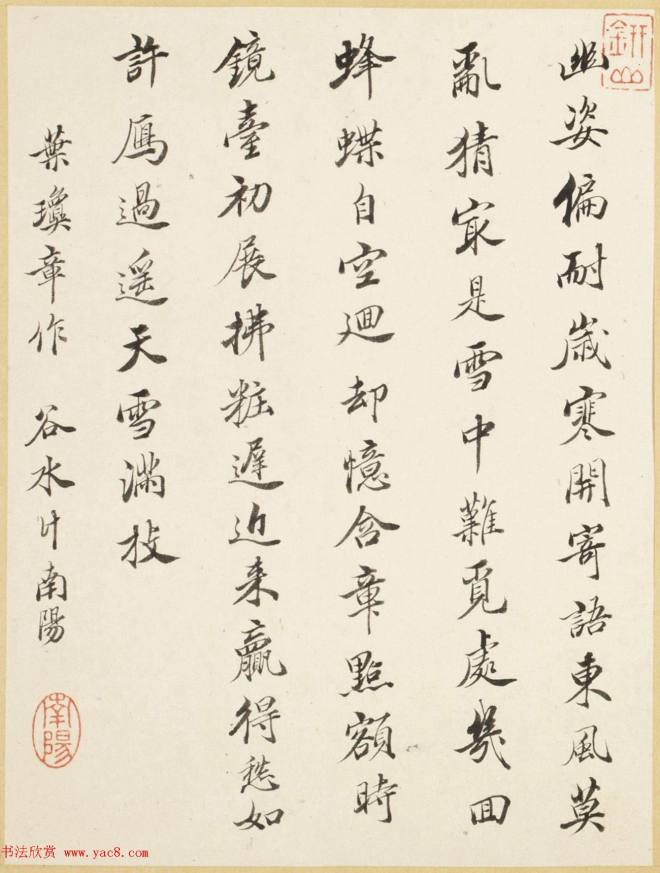 幽姿偏耐歲寒開寄語東風莫
亂猜㝡是雪中難覓處幾回
蜂蝶自空迴却憶含章點額時
鏡臺初展拂粧遲近来贏得愁如
許鴈過遥天雪滿枝
葉瓊章作 谷水计南陽
南陽
书法欣赏 www.yac8.com